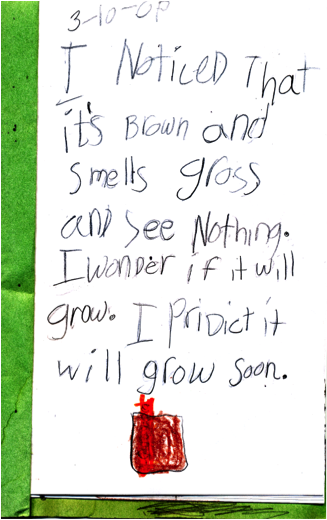 3-10-0P
I Noticed That
it's Brown and
smells gross
and see Nothing.
I wonder if it will
grow. I Pridict it
will grow soon.